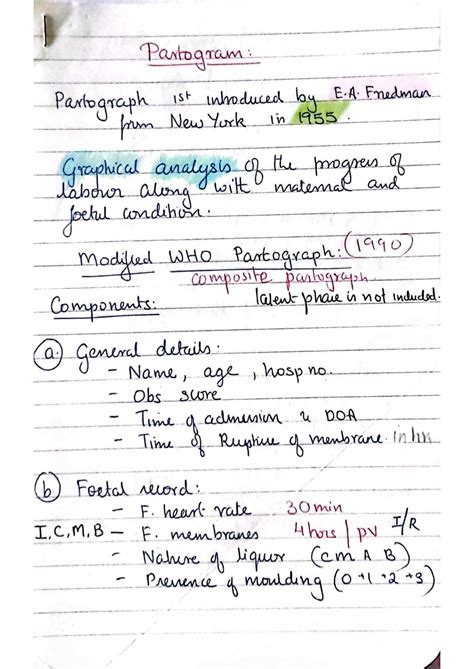 Partogram:
Partograph 1st introduced by E.A. Friedman
from New York in 1955.
Graphical analysis of the progress of
labour along with maternal and
foetal condition.
Modified WHO Partograph: (1990)
composite partograph
Components: latent phase is not included.
a. General details:
- Name, age, hosp no.
- Obs score
- Time of admission & DOA
- Time of Rupture of membrane in hrs
b) Foetal record:
- F. heart rate 30 min
I, C, M, B - F. membranes 4 hors | pv I/R
- Nature of liquor (C M A B)
- Presence of moulding (0 +1 +2 +3)